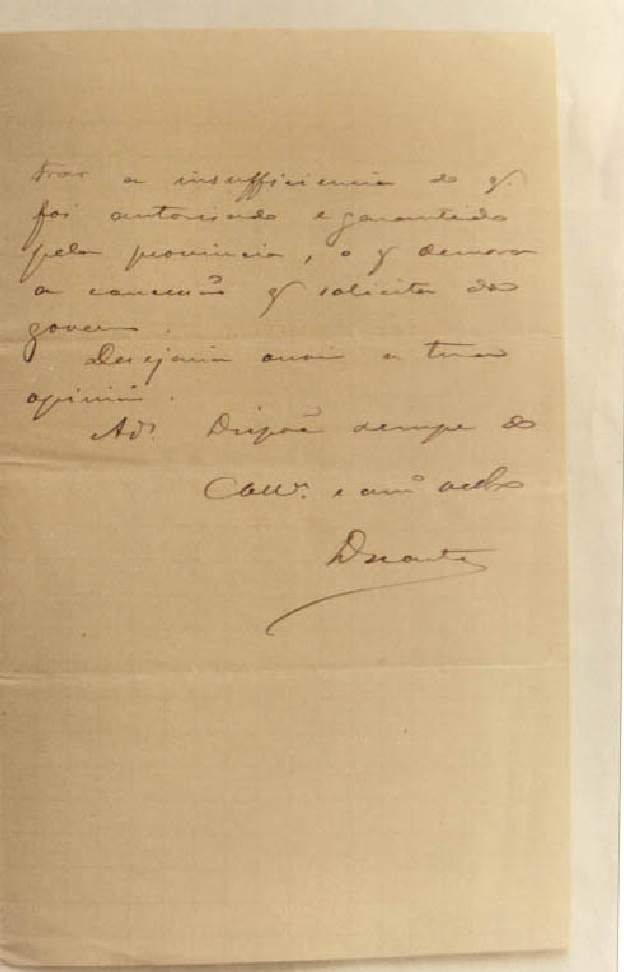 trar a insufficiencia do q.
foi autorisado e garantido
pela provincia, o q demora
a concessão q solicita do
governo.
Desejaria ouvir a tua
opinião.
Ad.s Dispõe sempre do
Coll.ª e am.º velho
Duarte